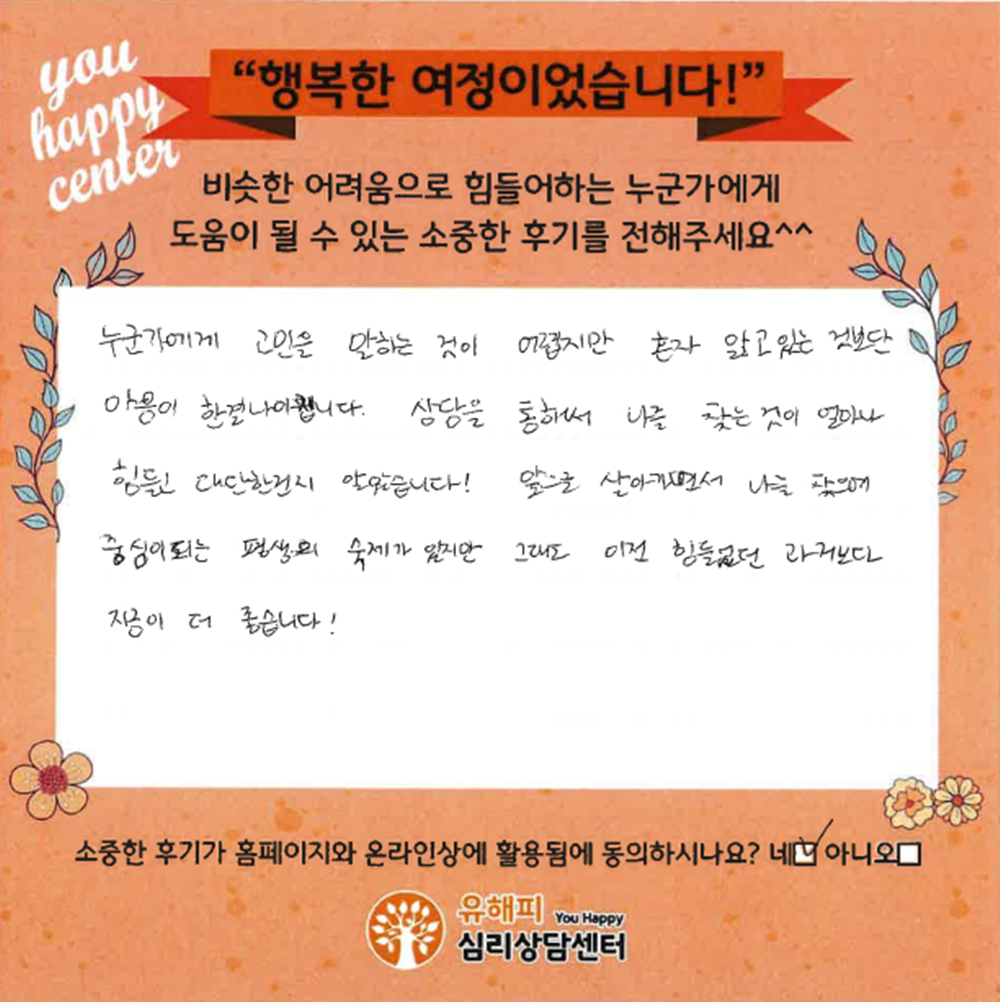 you
happy
center
“행복한 여정이었습니다!”
비슷한 어려움으로 힘들어하는 누군가에게
도움이 될 수 있는 소중한 후기를 전해주세요^^
누군가에게 고민을 말하는 것이 어렵지만 혼자 앓고 있는 것보단
마음이 한결 나아집니다. 상담을 통해서 나를 찾는 것이 얼마나
힘들고 대단한건지 알았습니다! 앞으로 살아가면서 나를 찾으며
중심이되는 평생의 숙제가 있지만 그래도 이전 힘들었던 과거보다
지금이 더 좋습니다!
소중한 후기가 홈페이지와 온라인상에 활용됨에 동의하시나요? 네☑ 아니오☐
유해피 You Happy
심리상담센터